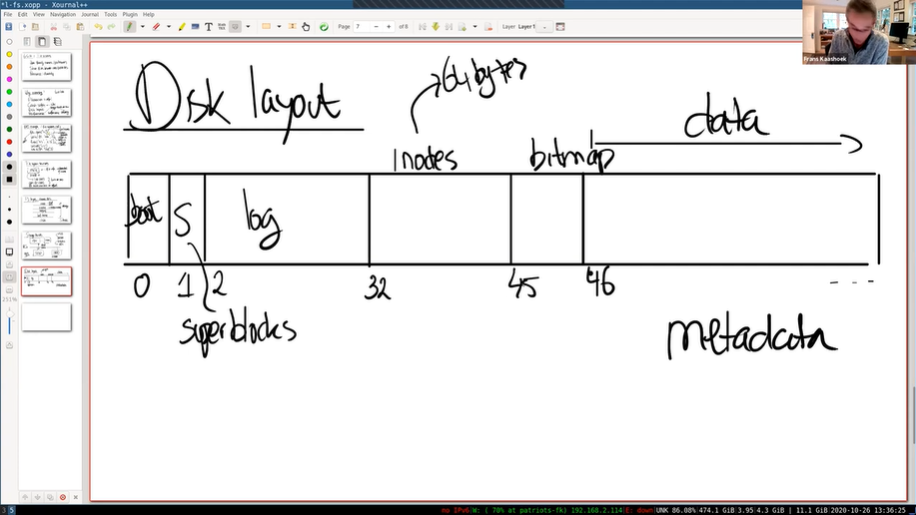 *l-fs.xopp - Xournal++
File Edit View Navigation Journal Tools Plugin Help
Page 7 of 8 Layer Layer 1
Frans Kaashoek
Disk layout
64 bytes
inodes bitmap data
boot S log
0 1 2 32 45 46 - - -
superblocks
metadata
211%
3 5
no IPv6 W: ( 70% at patriots-fk) 192.168.2.114 E: down UNK 86.08% 474.1 GiB 3.95 4.3 GiB | 11.1 GiB 2020-10-26 13:36:25